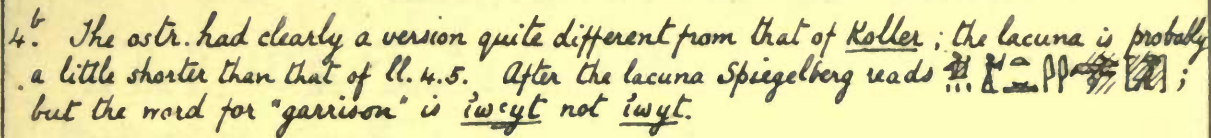 4.b The ostr. had clearly a version quite different from that of Koller; the lacuna is probably
a little shorter than that of ll. 4.5. After the lacuna Spiegelberg reads ;
but the word for "garrison" is iwcyt not iwyt.